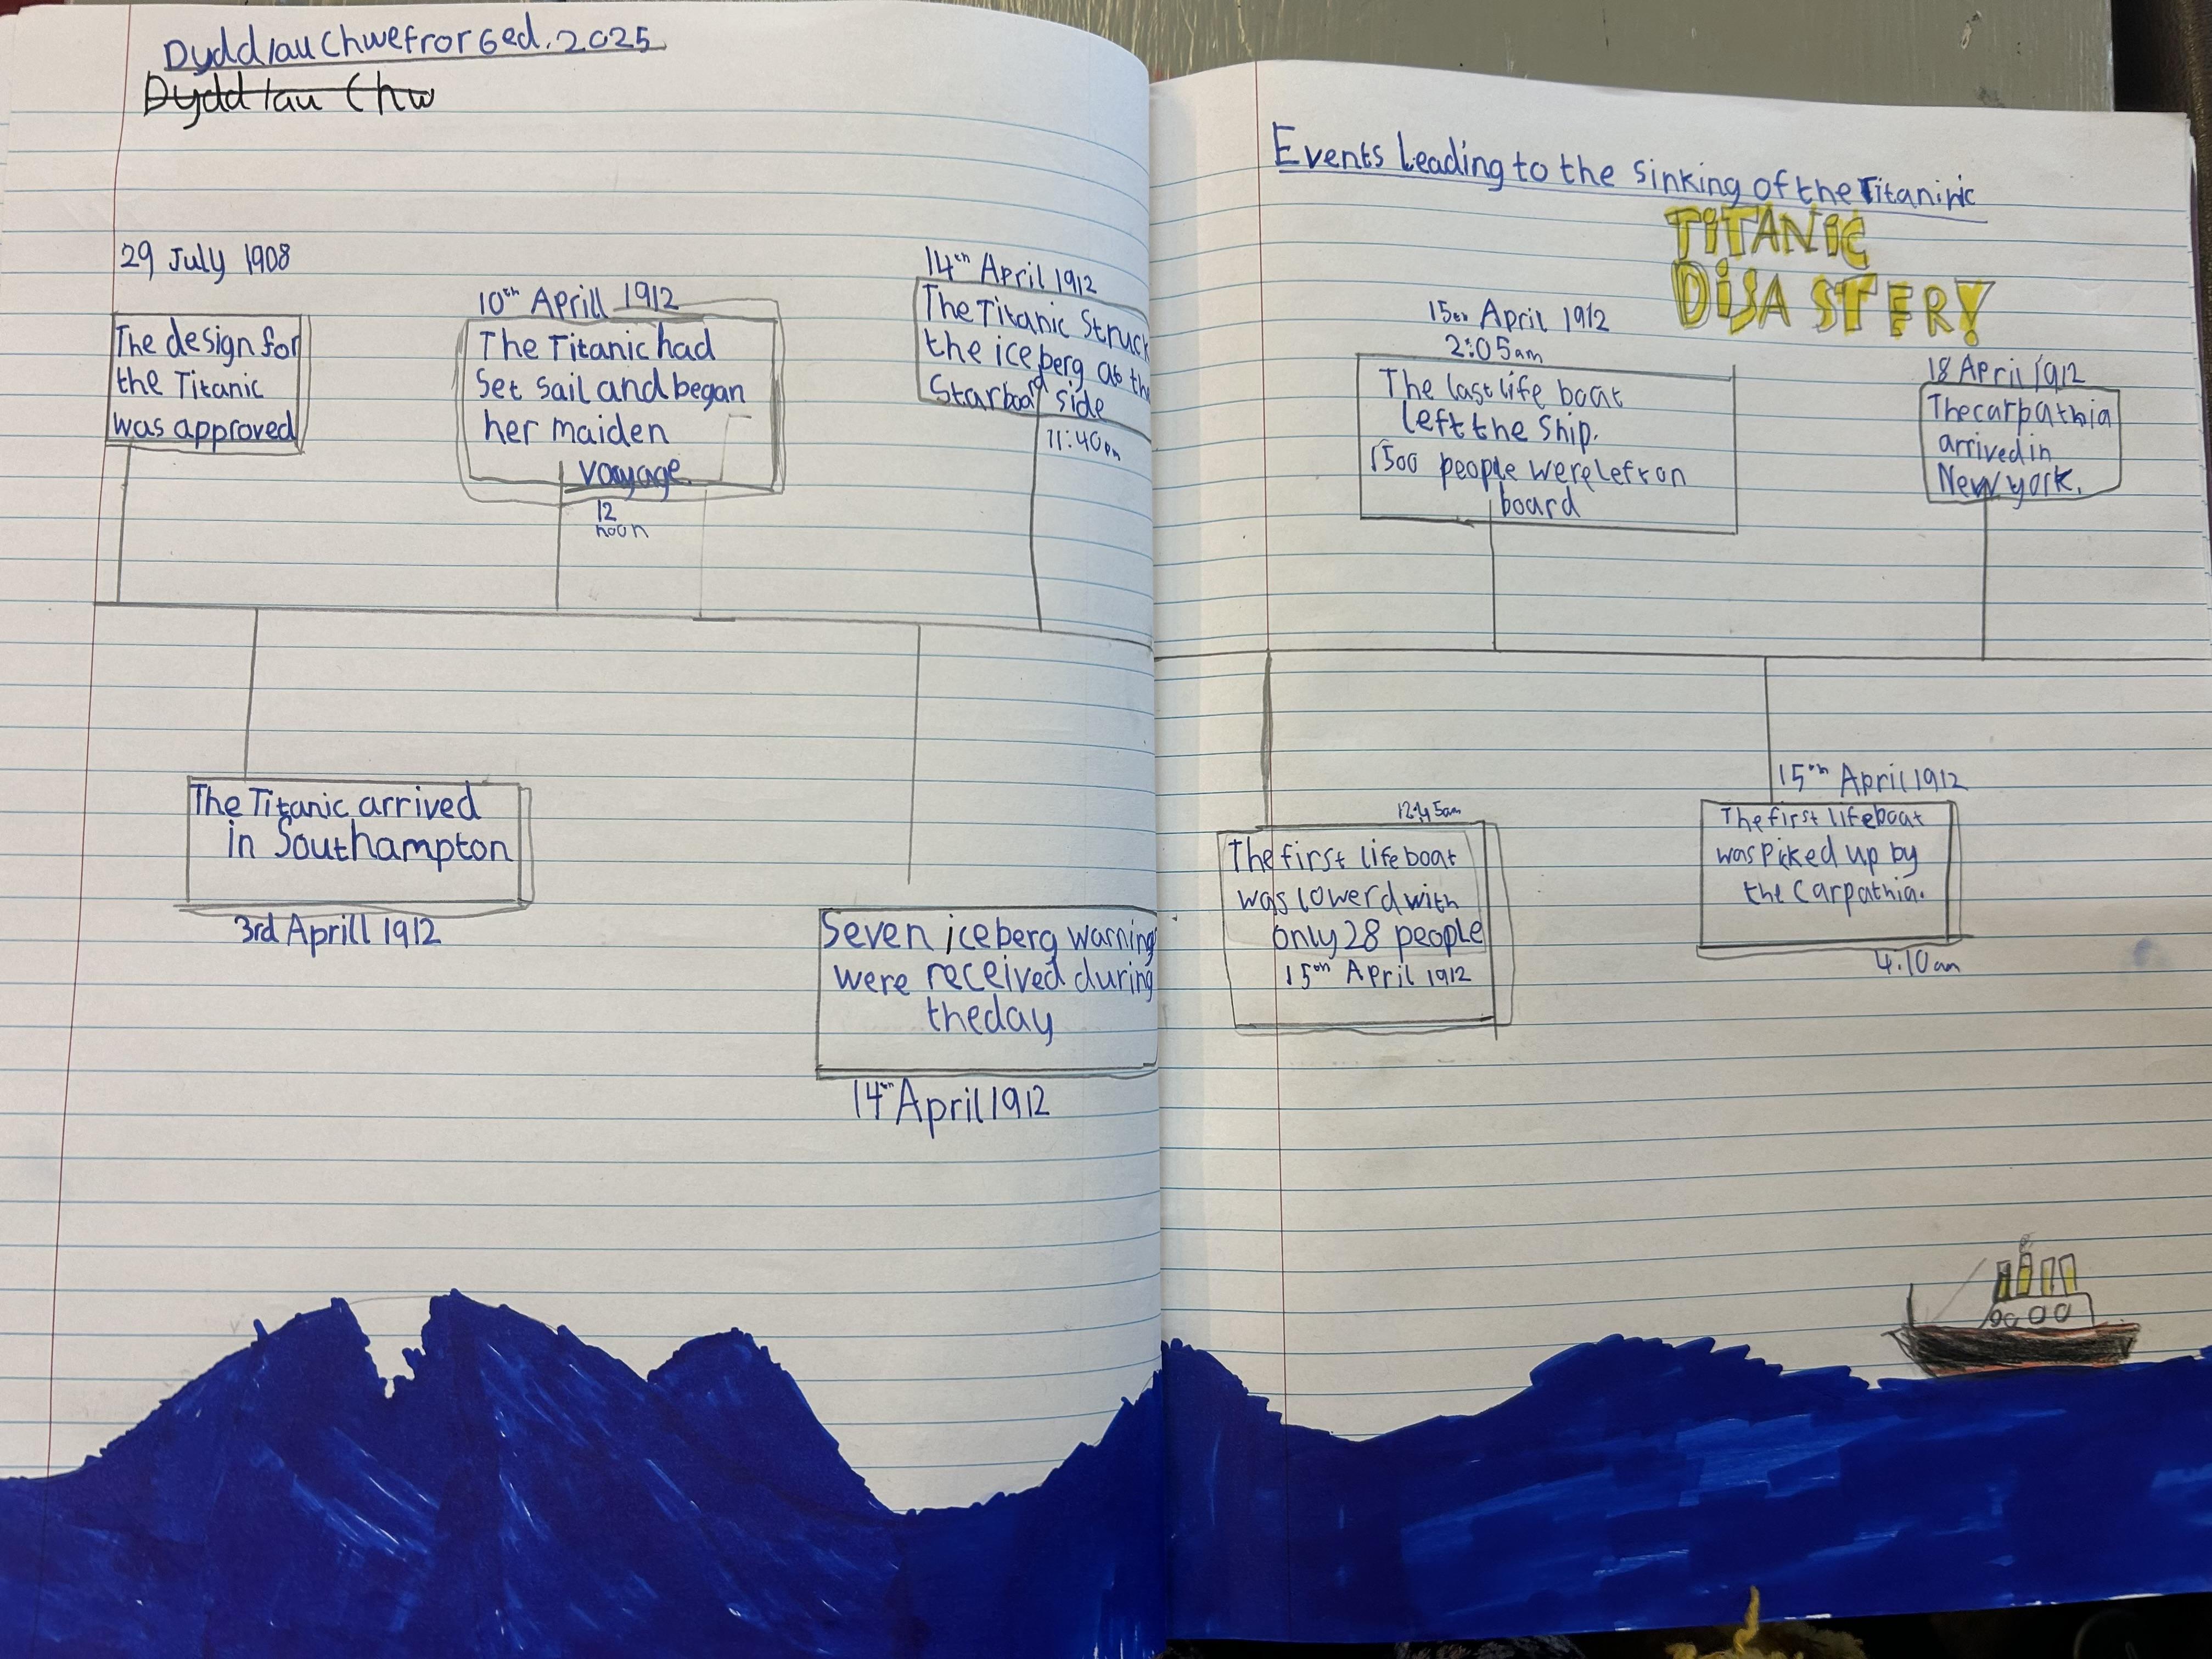 Dydd Iau Chwefror 6ed. 2025
Dydd Iau Chw
29 July 1908
The design for
the Titanic
was approved
10th Aprill 1912
The Titanic had
Set Sail and began
her maiden
voyage.
12
noon
14th April 1912
The Titanic Struck
the iceberg at the
Starboard side
11:40pm
The Titanic arrived
in Southampton
3rd Aprill 1912
Seven iceberg warning
were received during
the day
14th April 1912
Events Leading to the Sinking of the Titaninic
TITANIC
DISASTER!
15th April 1912
2:05am
The last life boat
left the Ship.
1500 people were left on
board
18 April 1912
The carpathia
arrived in
New york.
12:45am
The first life boat
was lowerd with
only 28 people
15th April 1912
15th April 1912
The first lifeboat
was Picked up by
the Carpathia.
4.10am